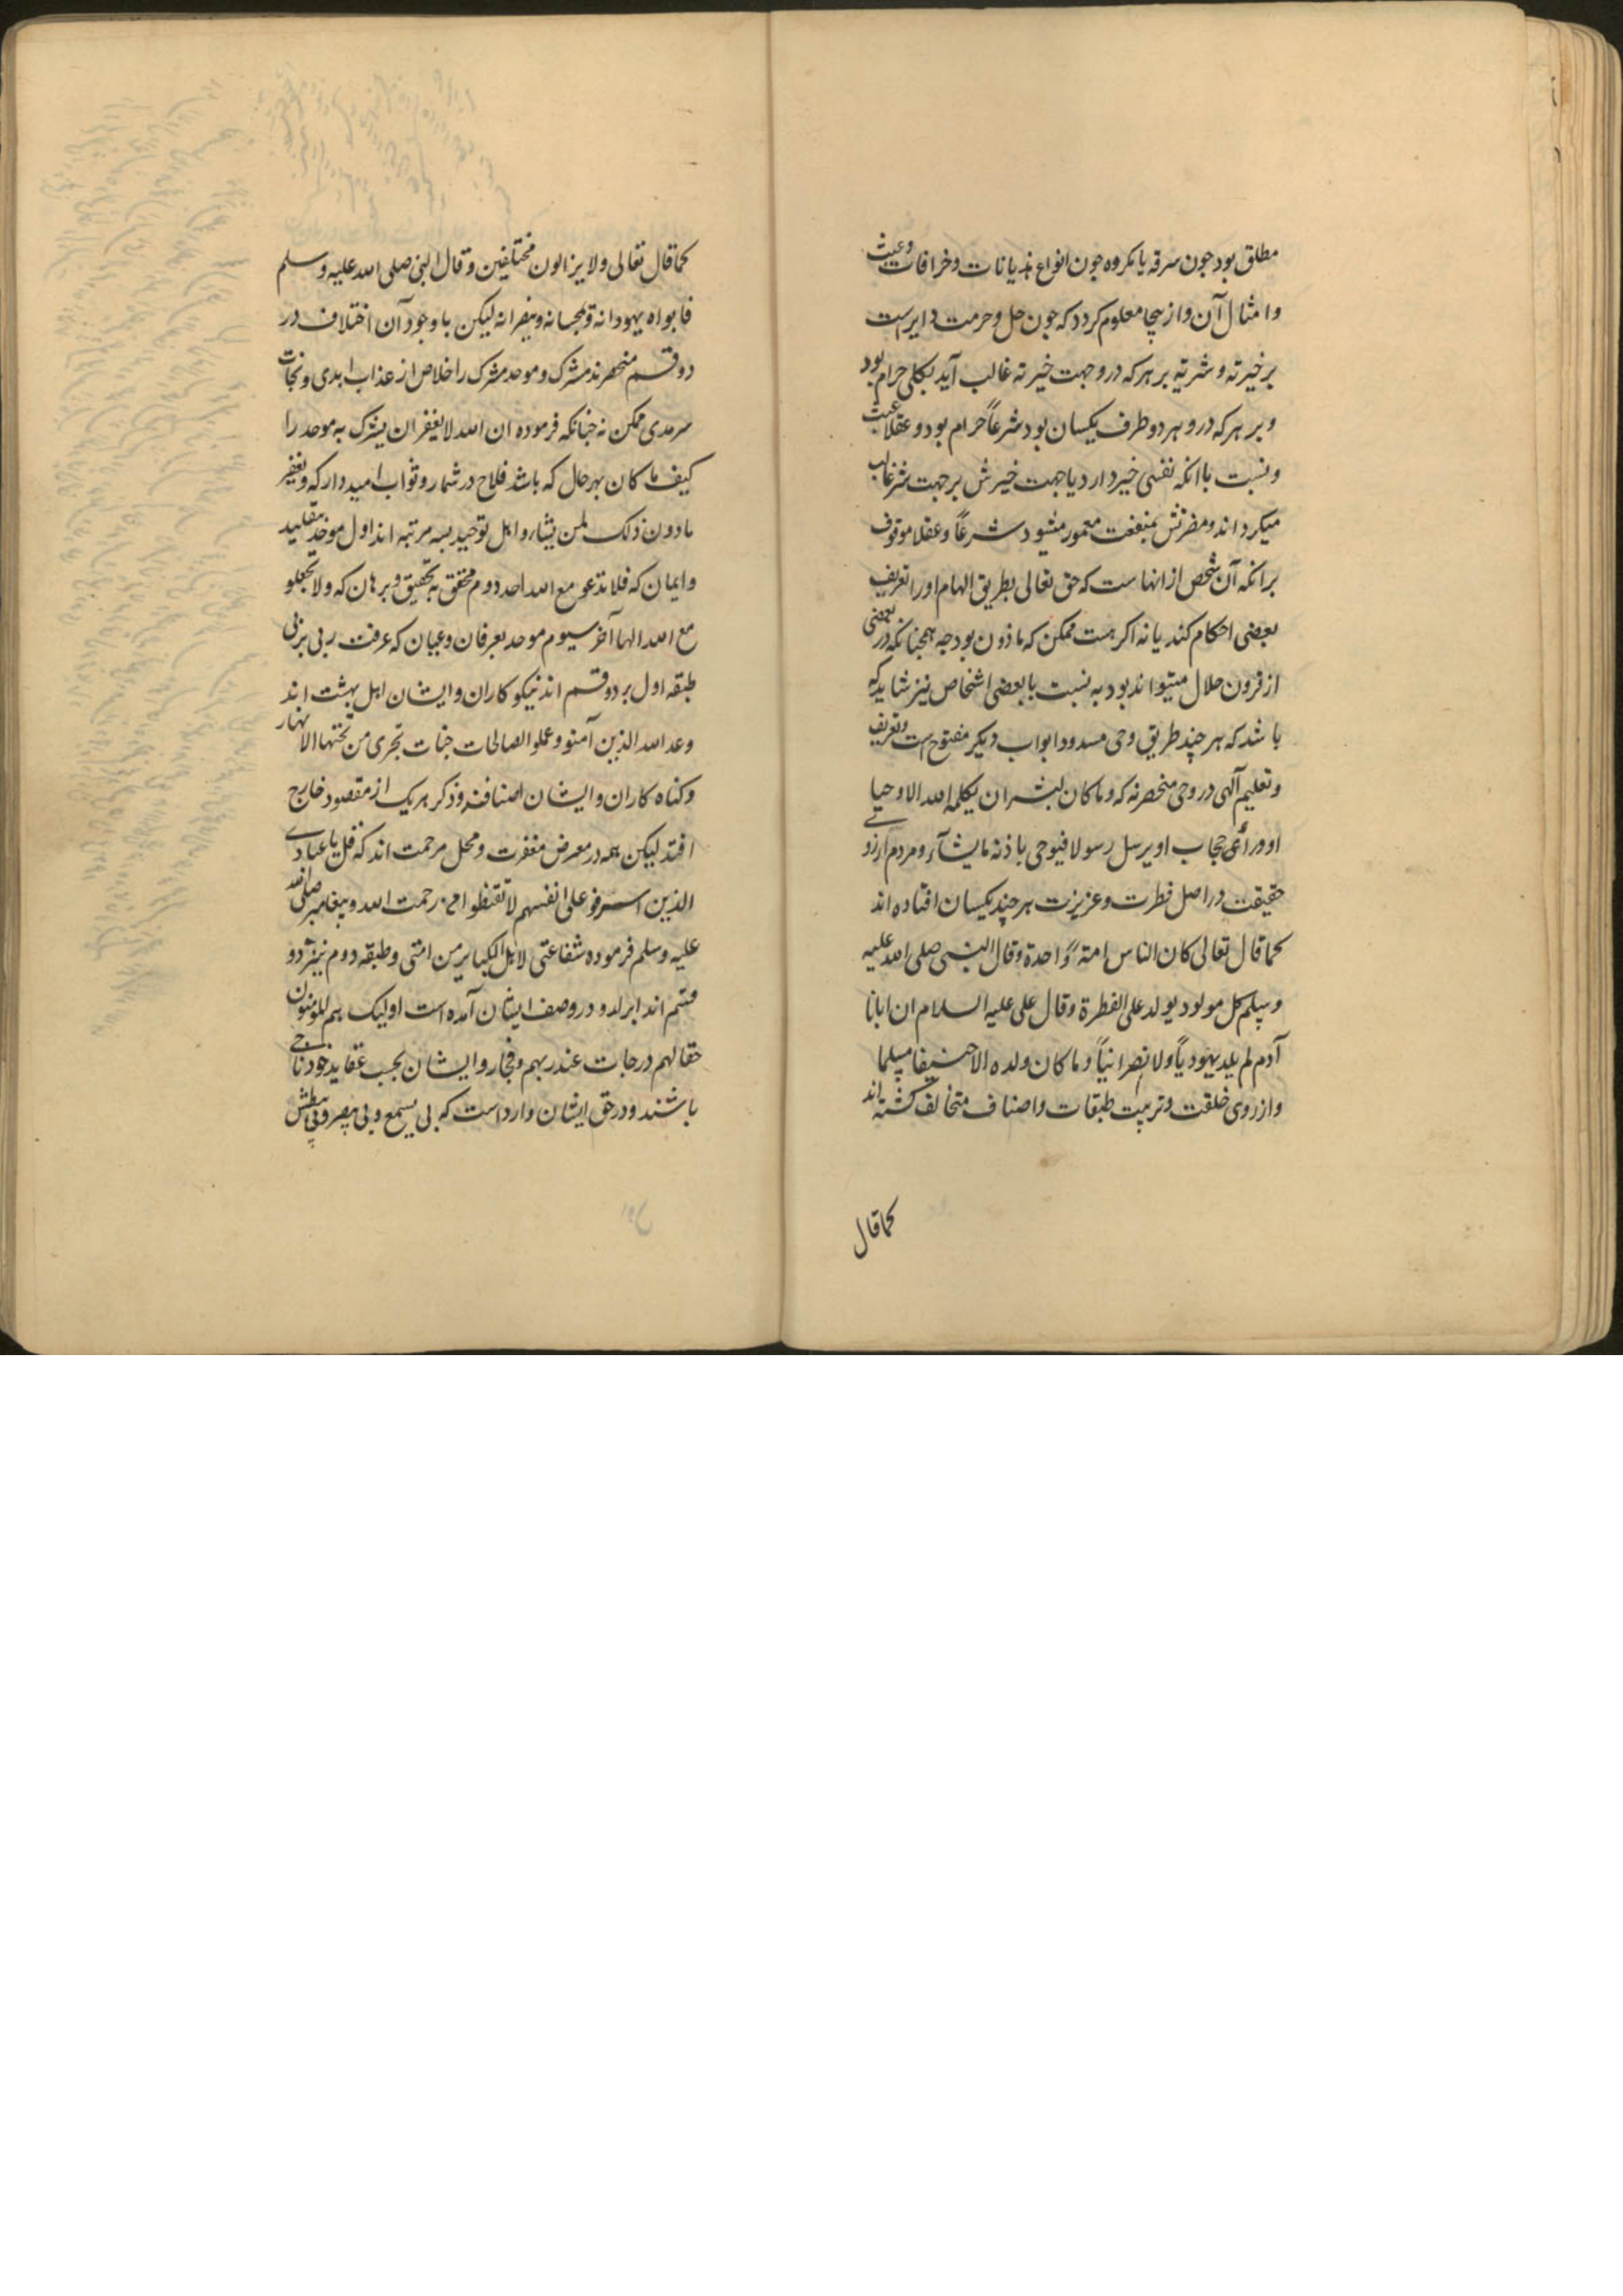 مطلق بود جون سرقه یا مکروه جون انواع هذیانات وخرافات وعبث
وامثال آن وازینجا معلوم کردد که جون حل وحرمت دایرست
بر خیرته وشریة بر هر که درو جهت خیرته غالب آید بکلی حرام بود
وبر هر که درو هر دو طرف یکسان بود شرعاً حرام بود وعقلا عبث
ونسبت باانکه نفسی خیر دارد یا جهت خیرش بر جهت شر غالب
میکرداند ومضرتش بمنفعت مغمور میشود شرعاً وعقلا موقوف
برانکه آن شخص از انهاست که حق تعالی بطریق الهام اورا تعریف
بعضی احکام کند یا نه اکر هست ممکن که ماذون بود جه همجنانکه در بعضی
از قرون حلال میتواند بود به نسبت با بعضی اشخاص نیز شاید که
باشد که هر چند طریق وحی مسدود ابواب دیکر مفتوح است وتعریف
وتعلیم آلهی در وحی منحصر نه که وما کان لبشر ان یکلمه الله الا وحیا
او ورائی حجاب او یرسل رسولا فیوحی باذنه ما یشآء ومردم از روی
حقیقت در اصل فطرت وعزیزت هر چند یکسان افتاده اند
کما قال تعالی کان الناس امة ً واحدة وقال النبی صلی الله علیه
وسلم کل مولود یولد علی الفطرة وقال علی علیه السلام ان ابانا
آدم لم یلد یهودیاً ولا نصرانیاً وما کان ولده الا حنیفا مسلما
واز روی خلقت وتربیت طبقات واصناف متخالف کشته اند
کما قال
کما قال تعالی ولا یزالون مختلفین وقال النبی صلی الله علیه وسلم
فابواه یهودانه ویمجسانه وینصرانه لیکن با وجود آن اختلاف در
دو قسم منحصرند مشرک وموحد مشرک را خلاص از عذاب ابدی ونجات
سرمدی ممکن نه جنانکه فرموده ان الله لا یغفر ان یشرک به موحد را
کیف ما کان بهر حال که باشد فلاح در شمار وثواب امیدوار که ویغفر
مادون ذلک لمن یشاء واهل توحید بسه مرتبه اند اول موحد بتقلید
وایمان که فلا تدعو مع الله احد دوم محقق به تحقیق وبرهان که ولا تجعلو
مع الله الها آخر سیوم موحد بعرفان وعیان که عرفت ربی بربی
طبقه اول بر دو قسم اند نیکو کاران وایشان اهل بهشت اند
وعد الله الذین آمنو وعملو الصالحات جنات تجری من تحتها الانهار
وکناه کاران وایشان اصنافند وذکر هر یک از مقصود خارج
افتد لیکن همه در معرض مغفرت ومحل مرحمت اند که قل یا عبادی
الذین اسرفو علی انفسهم لا تقنطوا من رحمت الله وپیغامبر صلی الله
علیه وسلم فرموده شفاعتی لاهل الکبایر من امتی وطبقه دوم نیز بر دو
قسم اند ابرار ودر وصف ایشان آمده است اولیک هم المومنون
حقا لهم درجات عند ربهم وفجار وایشان بحسب عقاید خود ناجی
باشند ودر حق ایشان وارد است که بی یسمع وبی یبصر وبی یبطش